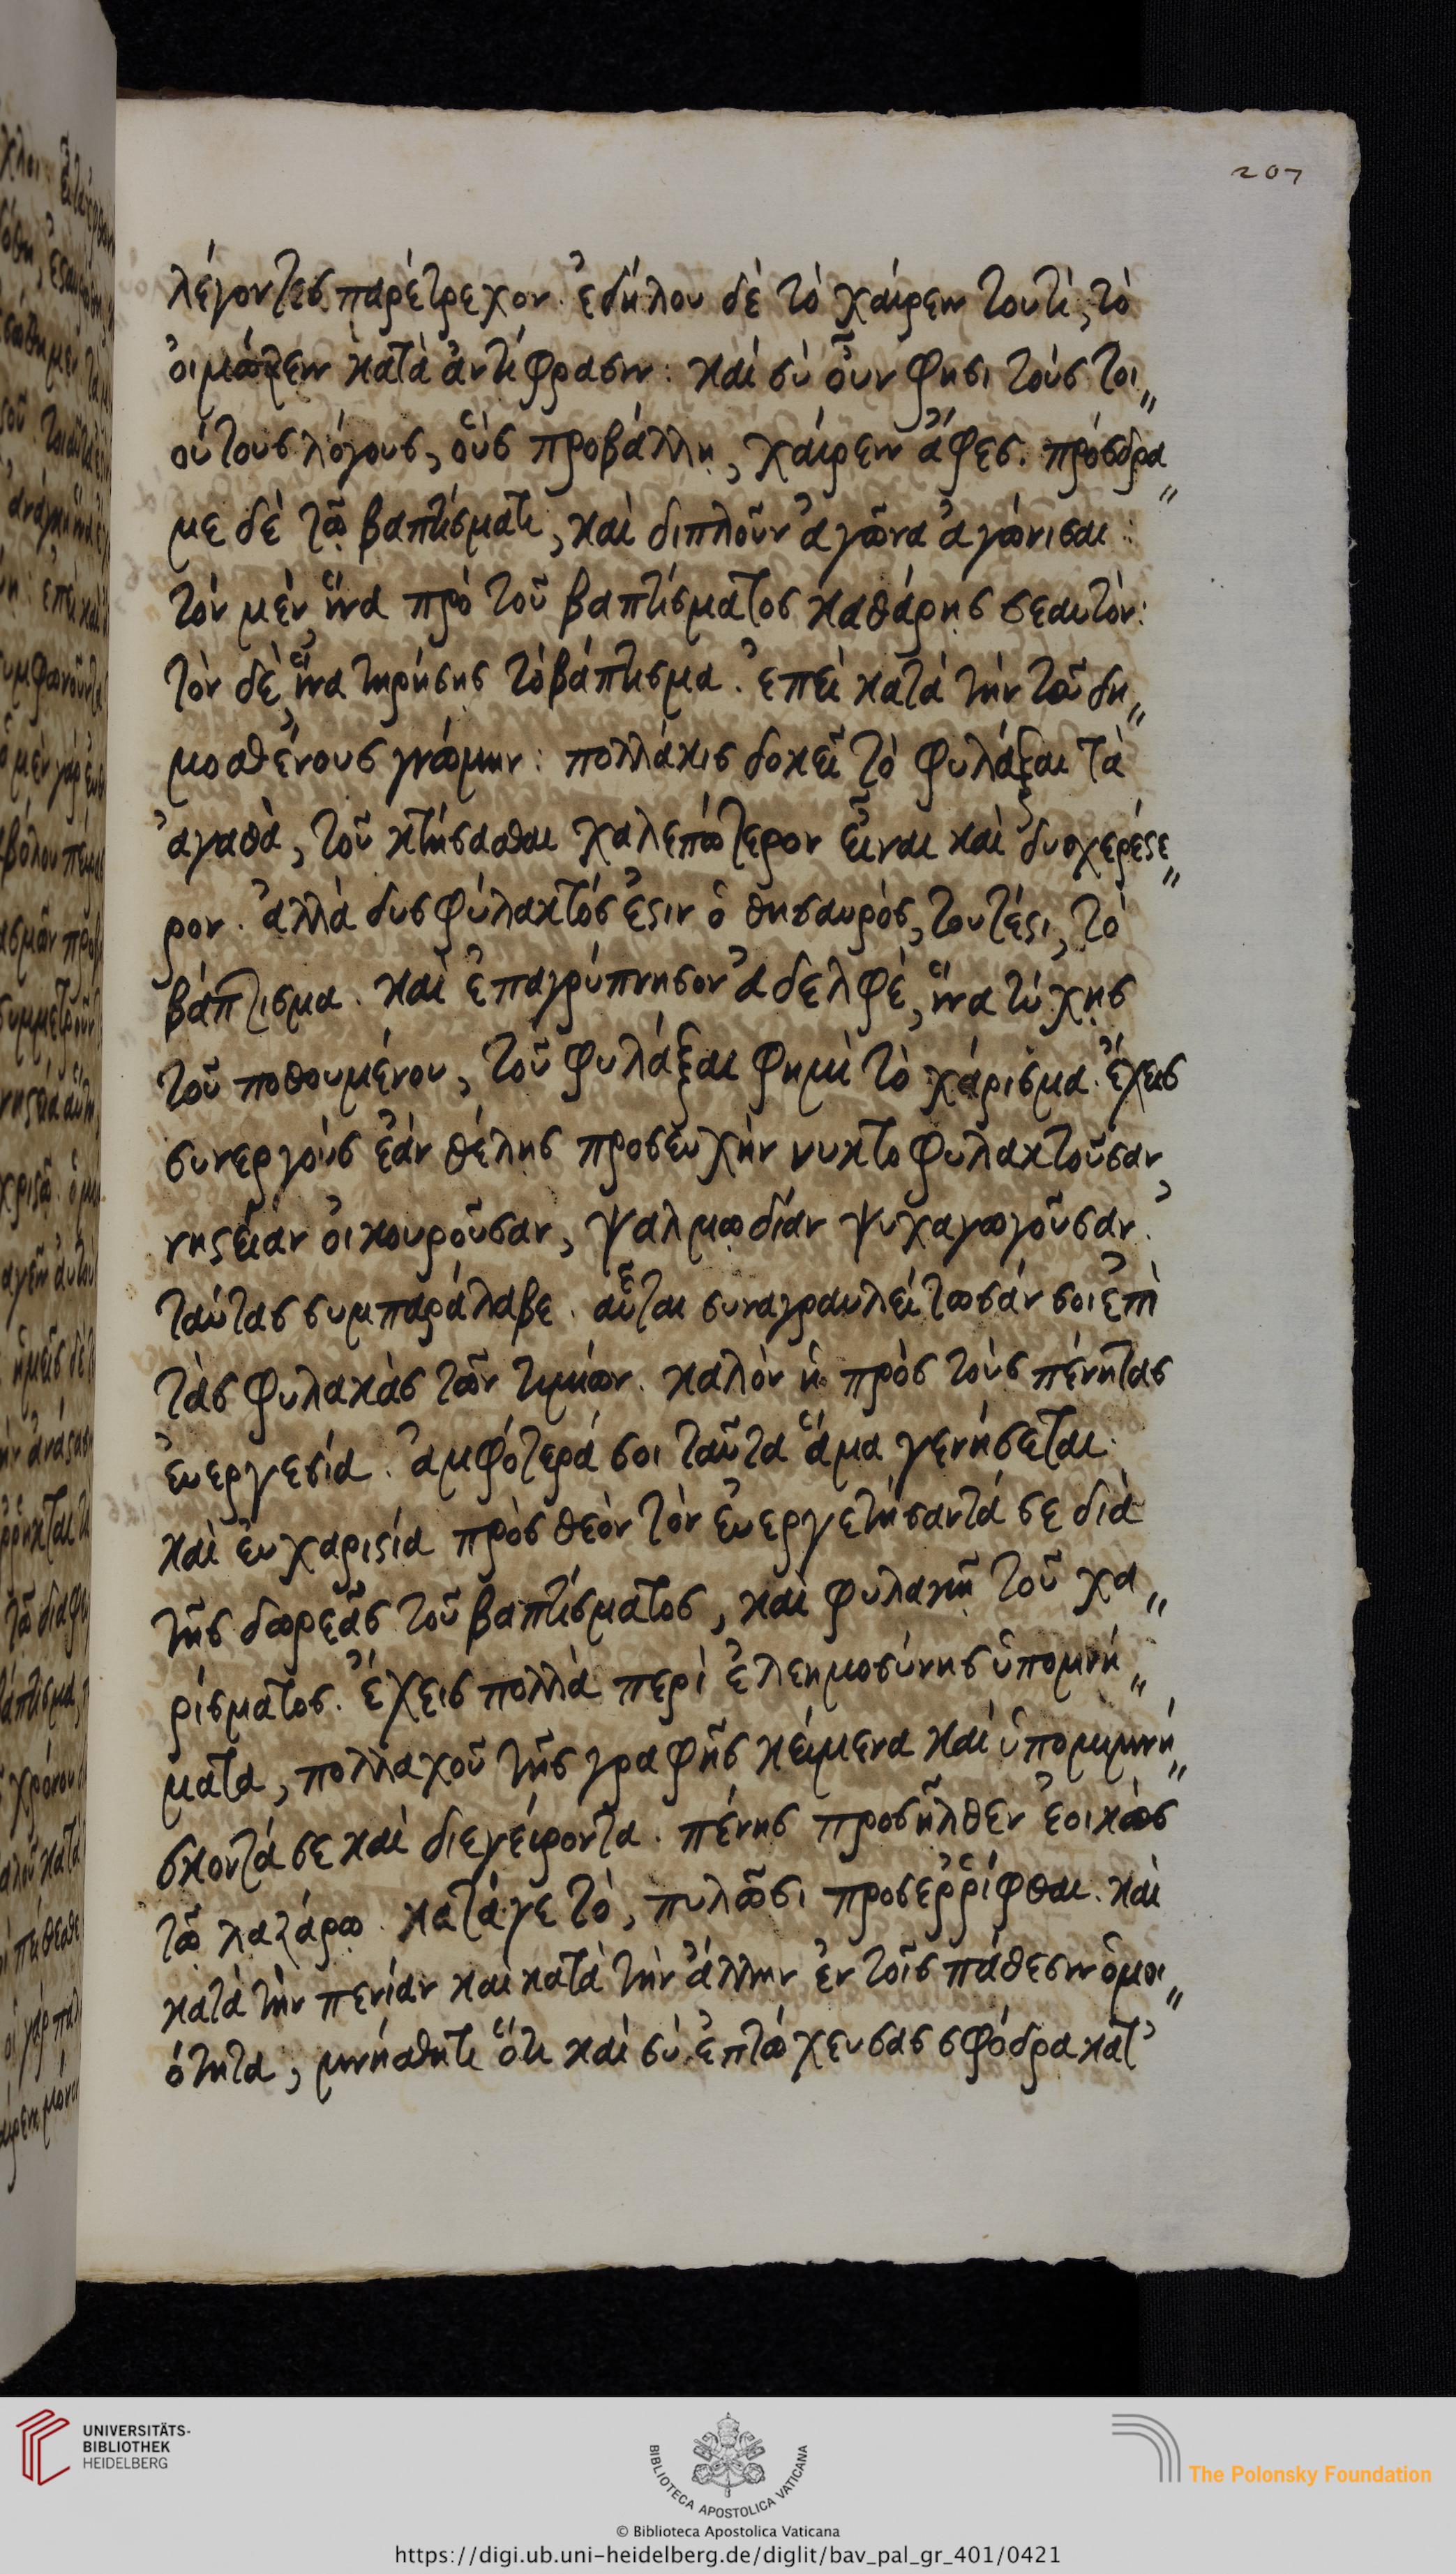 207
λέγοντες παρέτρεχον. ἐδήλου δὲ τὸ χαίρειν τουτὶ, τὸ
οἰμώζειν κατὰ ἀντίφρασιν: καὶ σὺ οὖν φησι τοὺς τοι„
ούτους λόγους, οὓς προβάλλη, χαίρειν ἄφες. πρόσδρα„
με δὲ τῶ βαπτίσματι, καὶ διπλοῦν ἀγῶνα ἀγώνισαι:
τὸν μὲν ἵνα πρὸ τοῦ βαπτίσματος καθάρης σεαυτόν:
τὸν δὲ, ἵνα τηρήσης τὸ βάπτισμα. ἐπεὶ κατὰ τὴν τοῦ δη„
μοσθένους γνώμην: πολλάκις δοκεῖ τὸ φυλάξαι τὰ
ἀγαθὰ, τοῦ κτήσασθαι χαλεπώτερον εἶναι καὶ δυσχερέστε„
ρον. ἀλλὰ δυσφύλακτός ἐστιν ὁ θησαυρός, τουτέστι, τὸ
βάπτισμα. καὶ ἐπαγρύπνησον ἀδελφέ, ἵνα τύχης
τοῦ ποθουμένου, τοῦ φυλάξαι φημὶ τὸ χάρισμα. ἔχεις
συνεργοὺς ἐὰν θέλης προσευχὴν νυκτοφυλακτοῦσαν,
νηστείαν οἰκουροῦσαν, ψαλμωδίαν ψυχαγωγοῦσαν.
ταύτας συμπαράλαβε. αὗται συναγραυλείτωσάν σοι ἐπὶ
τὰς φυλακὰς τῶν τιμίων. καλὸν ἡ πρὸς τοὺς πένητας
εὐεργεσία. ἀμφότερά σοι ταῦτα ἅμα γενήσεται
καὶ εὐχαριστία πρὸς θεὸν τὸν εὐεργετήσαντά σε διὰ
τῆς δωρεᾶς τοῦ βαπτίσματος, καὶ φυλακὴ τοῦ χα„
ρίσματος. ἔχεις πολλὰ περὶ ἐλεημοσύνης ὑπομνή„
ματα, πολλαχοῦ τῆς γραφῆς κείμενα καὶ ὑπομιμνή„
σκοντά σε καὶ διεγείροντα. πένης προσῆλθεν ἐοικὼς
τῶ λαζάρω. κατάγε τὸ, πυλῶσι προσερρίφθαι. καὶ
κατὰ τὴν πενίαν καὶ κατὰ τὴν ἄλλην ἐν τοῖς πάθεσιν ὁμοι„
ότητα, μνήσθητι ὅτι καὶ σὺ ἐπτώχευσας σφόδρα κατ'
UNIVERSITÄTS-
BIBLIOTHEK
HEIDELBERG
BIBLIOTECA APOSTOLICA VATICANA
The Polonsky Foundation
© Biblioteca Apostolica Vaticana
https://digi.ub.uni-heidelberg.de/diglit/bav_pal_gr_401/0421